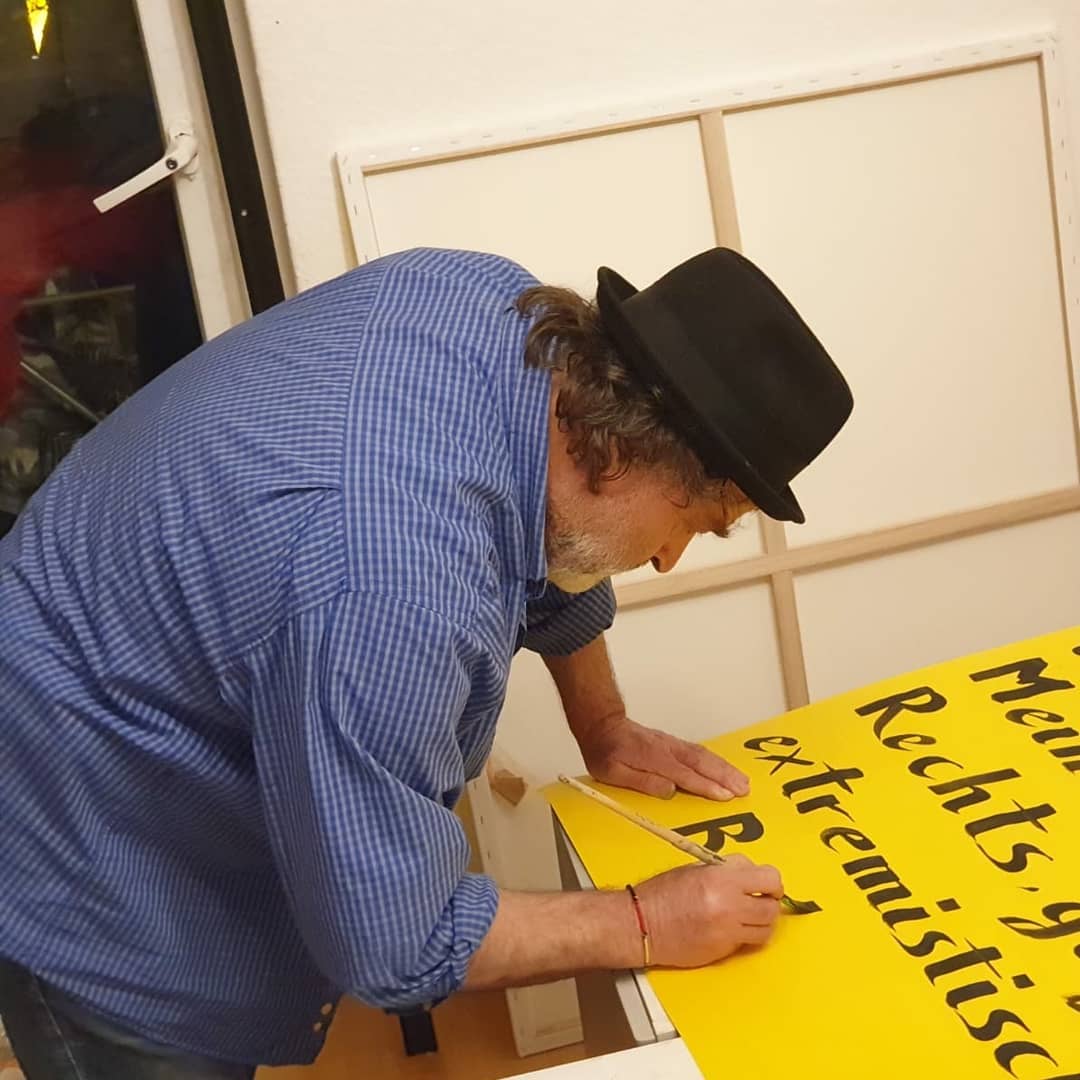 Mein
Rechts, g
extremistisc
R